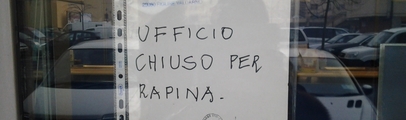 UFFICIO
CHIUSO PER
RAPINA.